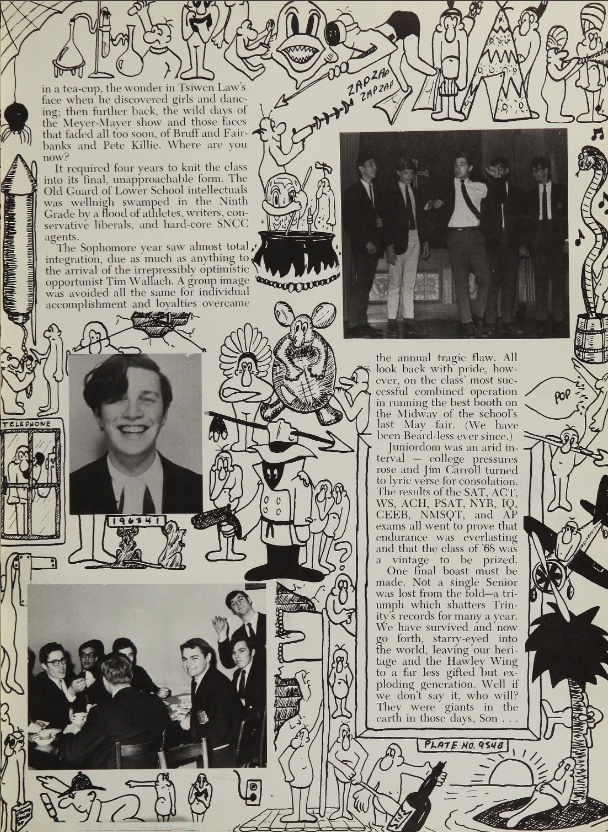 in a tea-cup, the wonder in Tsiwen Law's
face when he discovered girls and danc-
ing; then further back, the wild days of
the Meyer-Mayer show and those faces
that faded all too soon, of Bruff and Fair-
banks and Pete Killie. Where are you
now?
It required four years to knit the class
into its final, unapproachable form. The
Old Guard of Lower School intellectuals
was wellnigh swamped in the Ninth
Grade by a flood of athletes, writers, con-
servative liberals, and hard-core SNCC
agents.
The Sophomore year saw almost total
integration, due as much as anything to
the arrival of the irrepressibly optimistic
opportunist Tim Wallach. A group image
was avoided all the same for individual
accomplishment and loyalties overcame
the annual tragic flaw. All
look back with pride, how-
ever, on the class' most suc-
cessful combined operation
in running the best booth on
the Midway of the school's
last May fair. (We have
been Beard-less ever since.)
Juniordom was an arid in-
terval — college pressures
rose and Jim Carroll turned
to lyric verse for consolation.
The results of the SAT, ACT,
WS, ACH, PSAT, NYR, IQ,
CEEB, NMSQT, and AP
exams all went to prove that
endurance was everlasting
and that the class of '68 was
a vintage to be prized.
One final boast must be
made. Not a single Senior
was lost from the fold—a tri-
umph which shatters Trin-
ity's records for many a year.
We have survived and now
go forth, starry-eyed into
the world, leaving our heri-
tage and the Hawley Wing
to a far less gifted but ex-
ploding generation. Well if
we don't say it, who will?
They were giants in the
earth in those days, Son . . .
ZAP ZAP
ZAP ZAP
POP
TELEPHONE
196341
?
PLATE NO. 954B